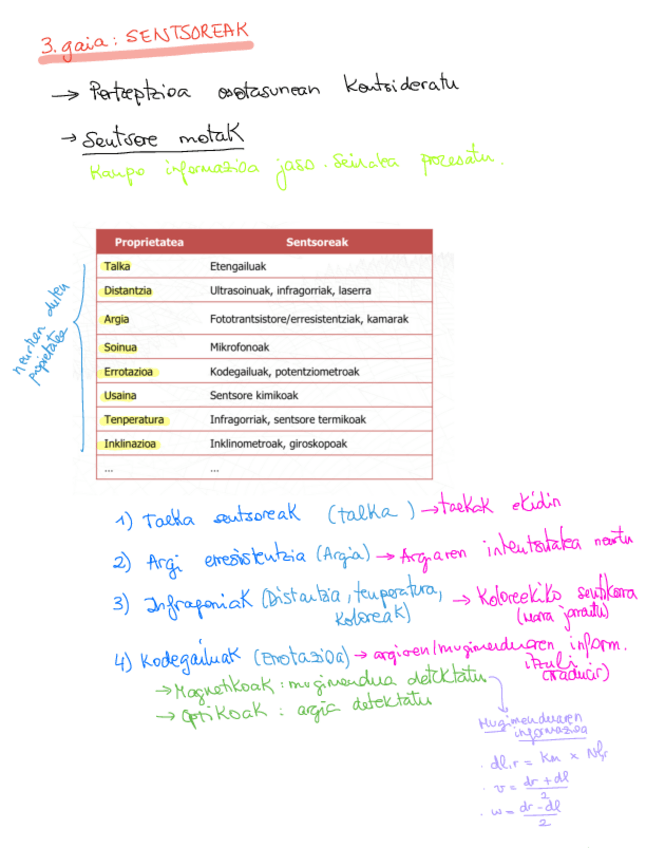 3. gaia: SENTSOREAK
→ Pertzeptzioa osotasunean kontsideratu
→ Sentsore motak
Kanpo informazioa jaso. Seinalea prozesatu.
Proprietatea Sentsoreak
Talka Etengailuak
Distantzia Ultrasoinuak, infragorriak, laserra
Argia Fototrantsistore/erresistentziak, kamarak
Soinua Mikrofonoak
Errotazioa Kodegailuak, potentziometroak
Usaina Sentsore kimikoak
Tenperatura Infragorriak, sentsore termikoak
Inklinazioa Inklinometroak, giroskopoak
... ...
neurtzen duten
proprietatea
1) Talka sentsoreak (talka) → talkak ekidin
2) Argi erresistentzia (Argia) → Argiaren intentsitatea neurtu
3) Infragorriak (Distantzia, tenperatura, koloreak) → Koloreekiko sentikorra
(marra jarraitu)
4) Kodegailuak (Errotazioa) → argiaren/mugimenduaren inform.
itzuli
(traducir)
→ Magnetikoak: mugimendua detektatu
→ Optikoak: argia detektatu
Mugimenduaren
informazioa
. dl,r = Km × Nl,r
. v = dr + dl / 2
. w = dr - dl / 2